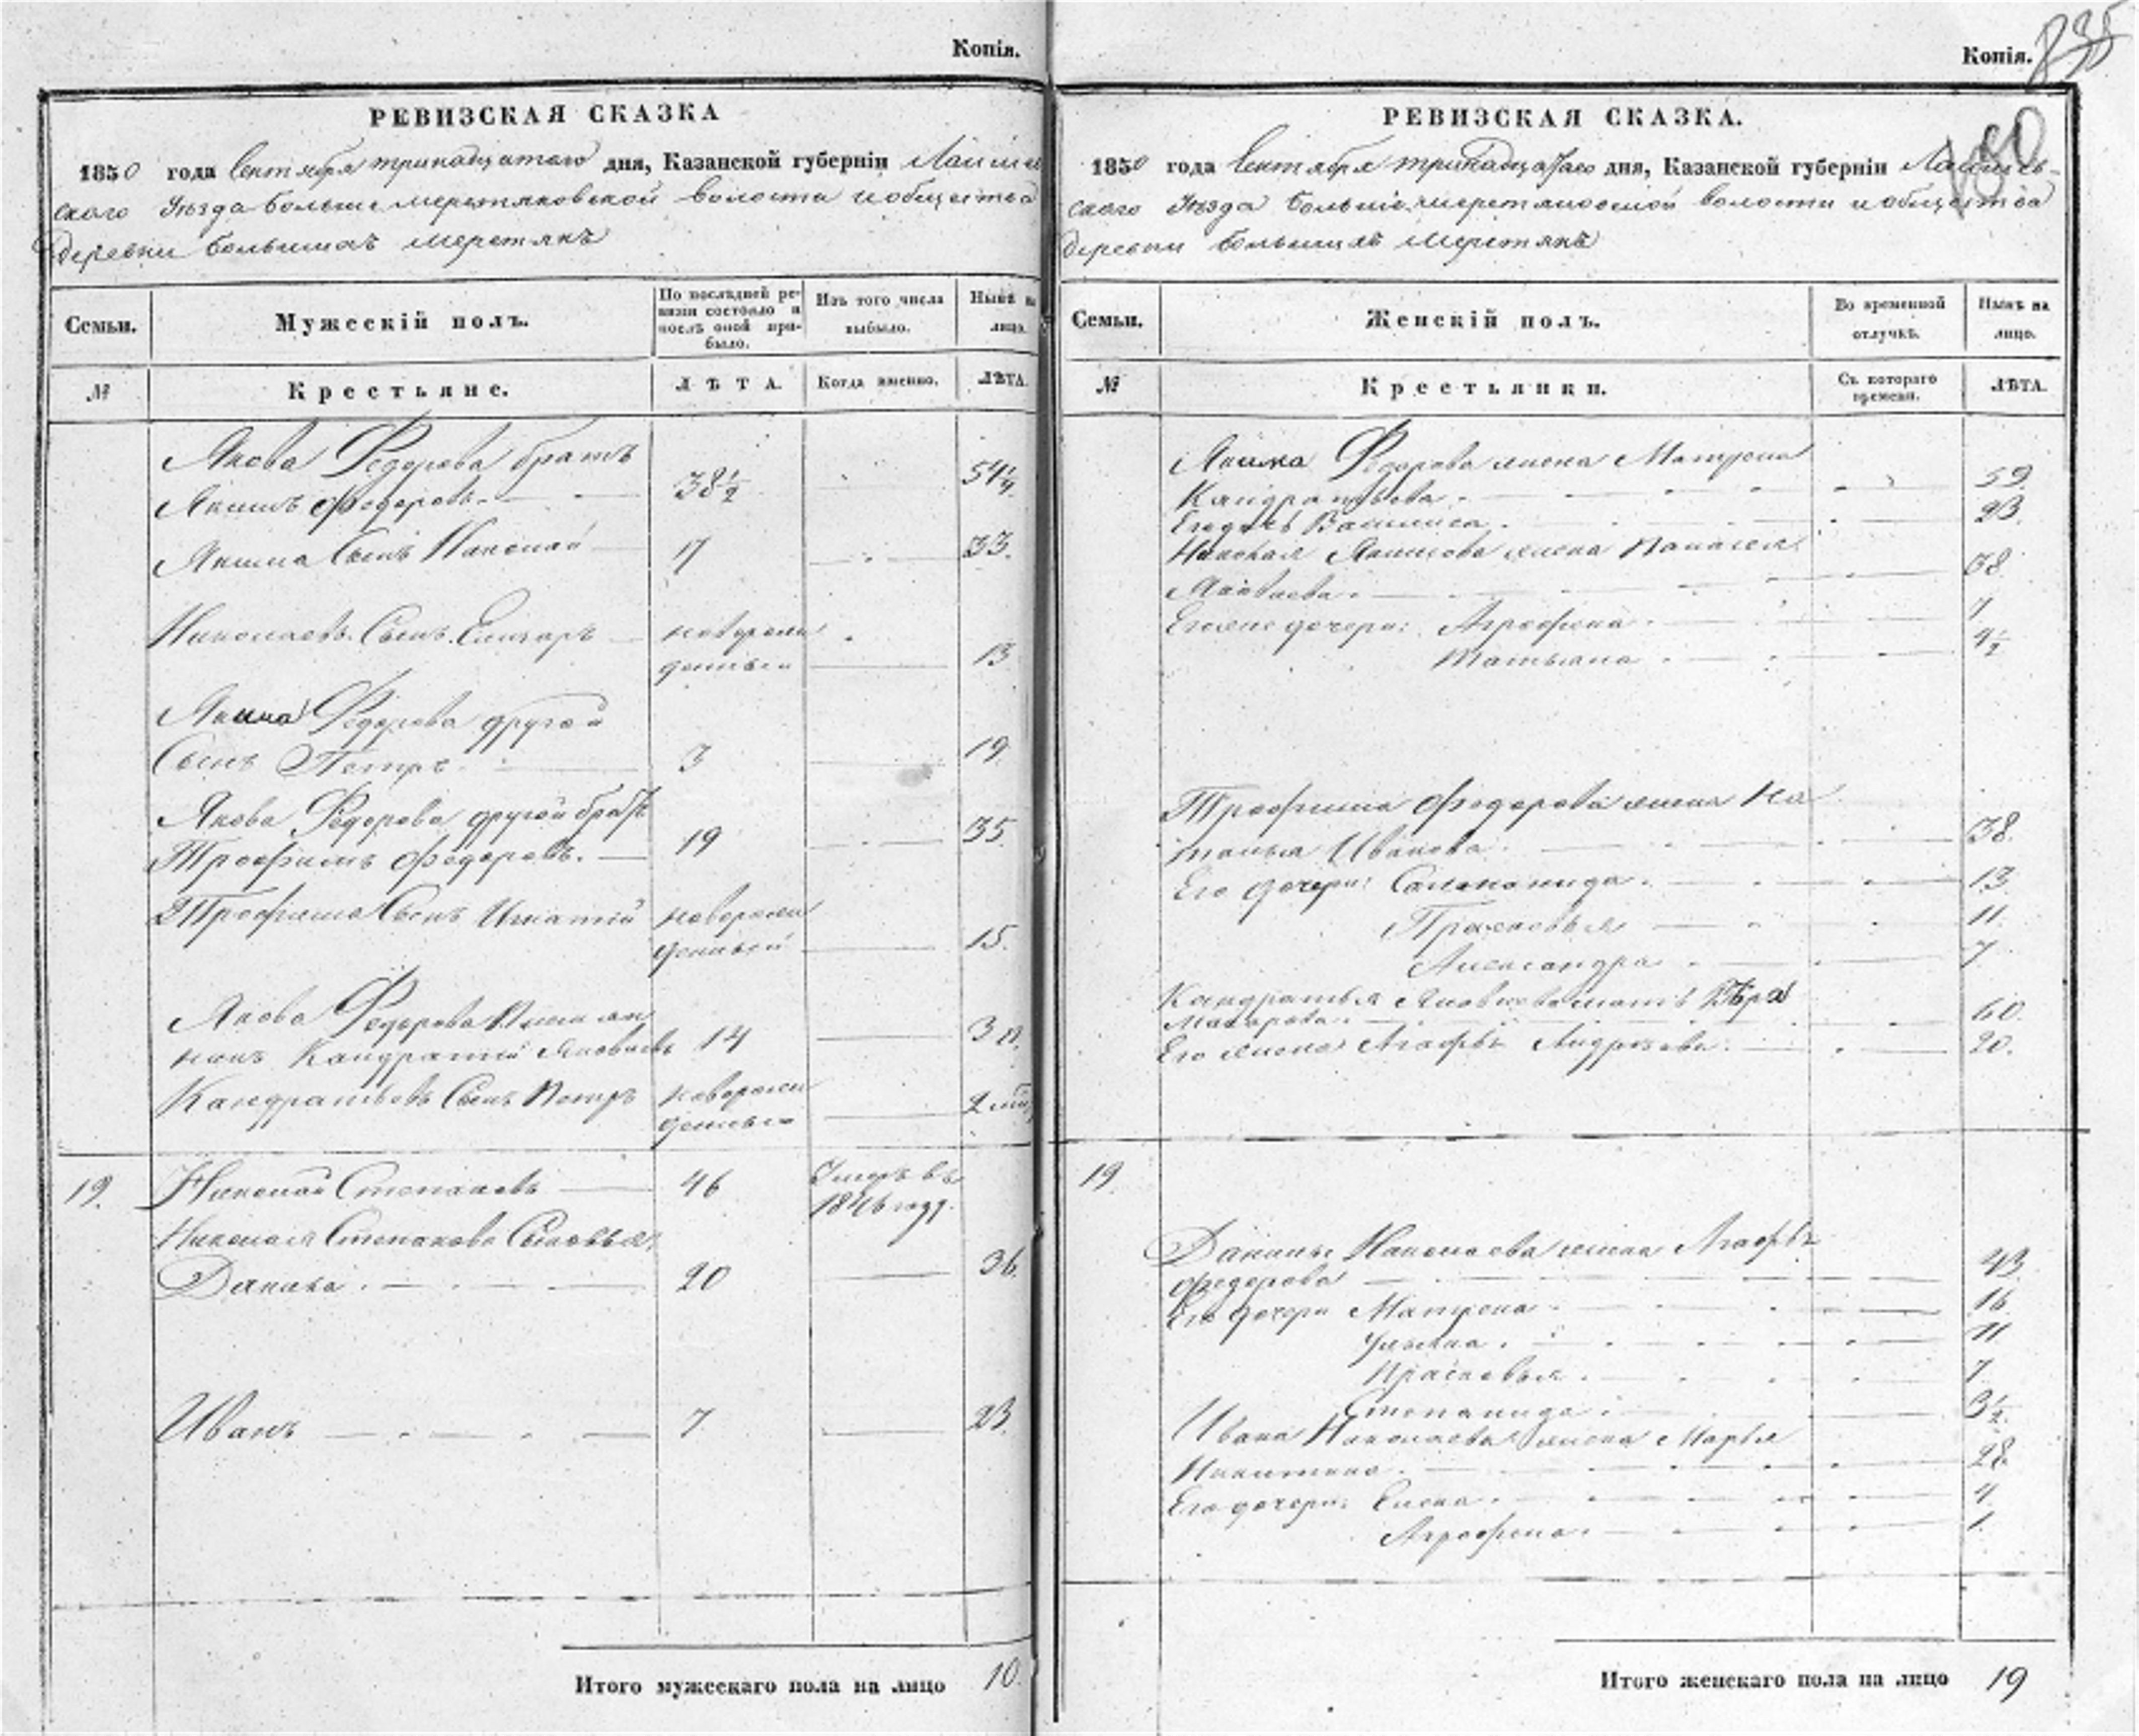 Копія.
РЕВИЗСКАЯ СКАЗКА
1850 года Сентября тринадцатаго дня, Казанской губерніи Лаише
скаго Уѣзда Больше меретяковской волости и общества
деревни Большихъ Меретякъ
Семьи.
Мужескій полъ.
По послѣдней ре-
визіи состояло и
послѣ оной при-
было.
Изъ того числа
выбыло.
Нынѣ на
лицо.
№
Крестьяне.
ЛѢТА.
Когда именно.
ЛѢТА.
Якова Федорова братъ
Якимъ Федоровъ 38½ 54¼
Якима Сынъ Николай 17 33.
Николаевъ Сынъ Елизаръ новорож
денный 13
Якима Федорова другой
Сынъ Петръ 3 19.
Якова Федорова другой братъ
Трофимъ Федоровъ. 19 35.
Трофима Сынъ Игнатій новорож
денный 15.
Якова Федорова
Кандратій Яковлевъ 14
Кандратьевъ Сынъ Петръ новорож
денный
19. Николай Степановъ 46 Умеръ въ
1846 году.
Николая Степанова Сыновья:
Данила 20 36.
Иванъ 7 23.
Итого мужескаго пола на лицо 10.
Копія.
835
РЕВИЗСКАЯ СКАЗКА.
1850 года Сентября тринадцатаго дня, Казанской губерніи Лаишев-
скаго Уѣзда Больше-меретяковской волости и общества
деревни Большихъ Меретякъ
Семьи.
Женскій полъ.
Во временной
отлучкѣ.
Нынѣ на
лицо.
№
Крестьянки.
Съ котораго
времени.
ЛѢТА.
Якима Федорова жена Матрена
Кандратьева. 59.
Его дочь Василиса. 23.
Николая Якимова жена Пелагея
Яковлева. 38.
Его же дочери: Аграфена 7
Татьяна 4½
Трофима Федорова жена На
талья Иванова 38.
Его дочери: Соломонида. 13.
Прасковья 11.
Александра 7
Кандратья Яковлева мать Вѣра
Макарова. 60.
Его жена Агафья Андреева. 20.
19.
Данилы Николаева жена Агафья
Федорова 43.
Его дочери Матрена 16.
Ульяна. 11
Прасковья 7.
Степанида. 3½.
Ивана Николаева жена Марья
Никитина. 28.
Его дочери: Елена. 4.
Аграфена. 1.
Итого женскаго пола на лицо 19